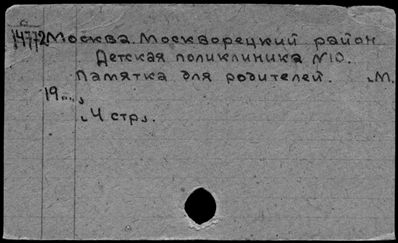 14772 Москва. Москворецкий район
Детская поликлиника №10.
Памятка для родителей. „М.
19...„
„4 стр„